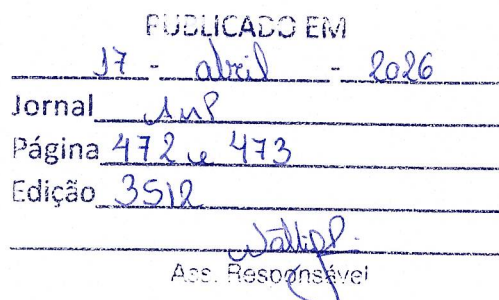 PUBLICADO EM
17 - abril - 2026
Jornal AMP
Página 472 e 473
Edição 3512
Ass. Responsável